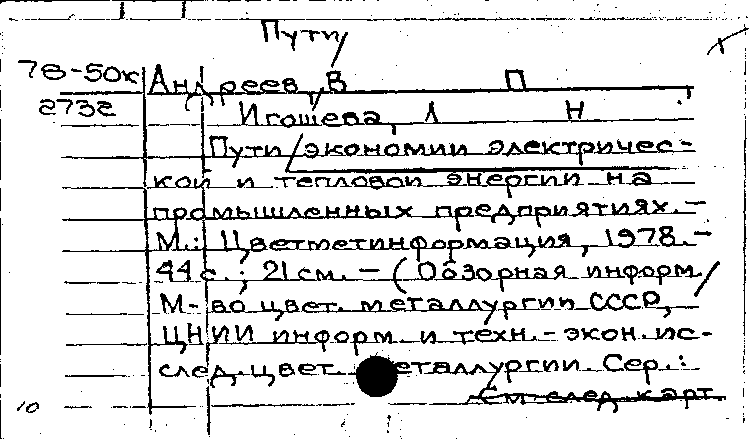 Пути
78-50к Андреев, В П
2732 Игошева, Л Н
Пути/экономии электричес-
кой и тепловой энергии на
промышленных предприятиях. -
М.: Цветметинформация, 1978. -
44 с.; 21 см. - (Обзорная информ/
М-во цвет. металлургии СССР,
ЦНИИ информ. и техн.-экон. ис-
след. цвет. металлургии. Сер.:
См след. карт.
10